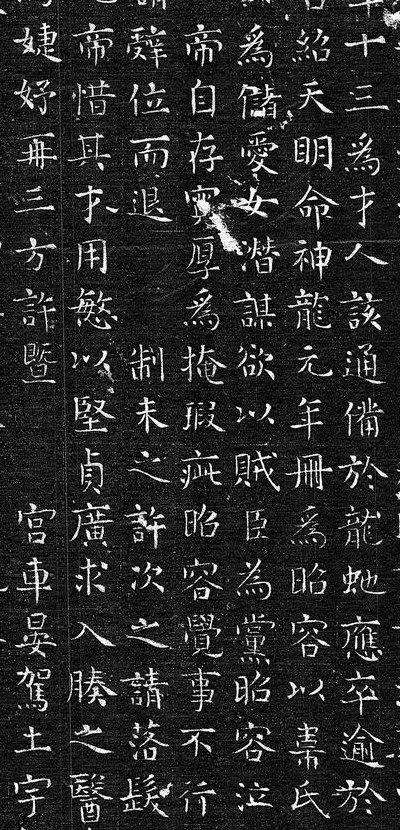 十三爲才人該通備於龍虵應卒逾於
紹天眀命神龍元年冊爲昭容以韋氏
爲儲愛女潛謀欲以賊臣為黨昭容泣
帝自存寬厚爲掩瑕疵昭容覺事不行
辭位而退　制未之許次之請落髮
帝惜其才用慜以堅貞廣求入腠之醫
婕妤再三方許暨　宮車晏駕土宇